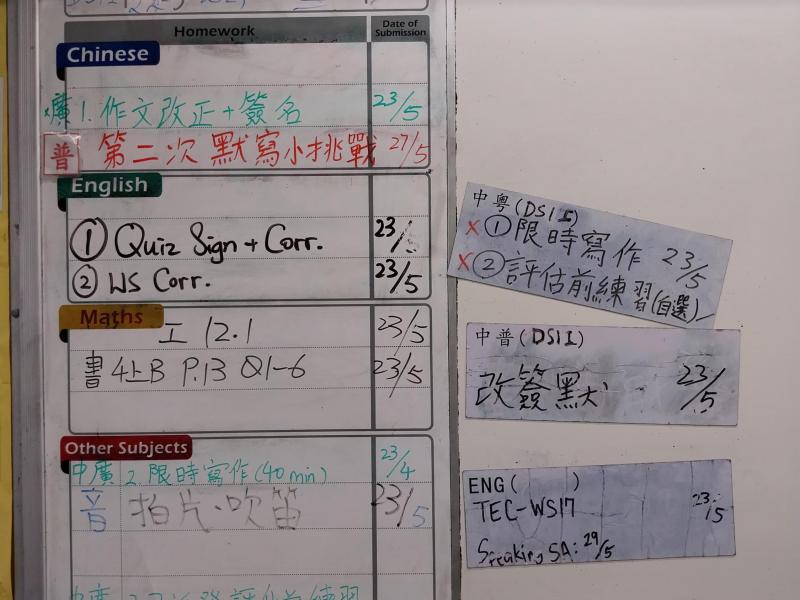 Homework
Date of Submission
Chinese
廣 1. 作文改正+簽名 23/5
普 第二次 默寫小挑戰 27/5
English
① Quiz Sign + Corr. 23/5
② WS Corr. 23/5
Maths
工 12.1 23/5
書 4上B P.13 Q1-6 23/5
Other Subjects
中廣 2. 限時寫作 (40 min) 23/4
音 拍片、吹笛 23/5
評估前練習
中粵(DS1 I)
x ① 限時寫作 23/5
x ② 評估前練習(自選)
中普(DS1 I)
改簽默 23/5
ENG( )
TEC-WS17 23/5
Speaking SA: 29/5